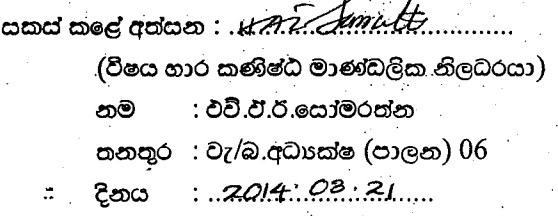 සකස් කළේ අත්සන : ....................
(විෂය භාර කණිෂ්ඨ මාණ්ඩලික නිලධරයා)
නම : එච්.ඒ.ර්.සෝමරත්න
තනතුර : වැ/බ.අධ්‍යක්ෂ (පාලන) 06
දිනය : ..2014. 03. 21......